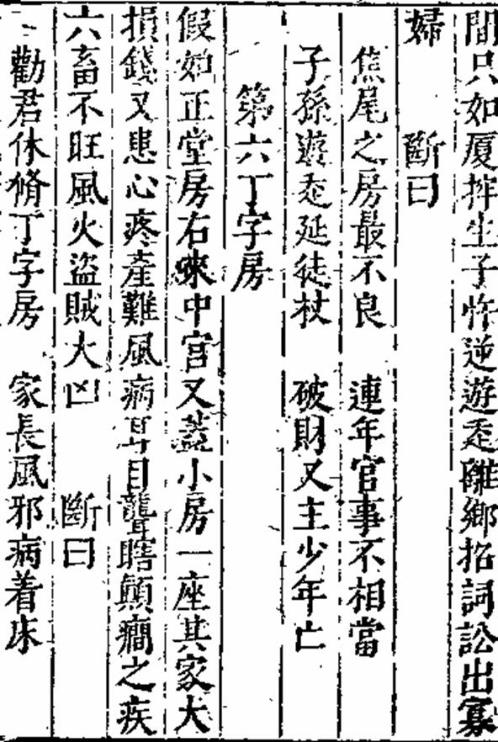 間只如厦捽生子忤逆遊走離鄉招詞訟出寡
婦　斷曰
焦尾之房最不良　連年官事不相當
子孫遊走延徒杖　破財又主少年亡
第六丁字房
假如正堂房右來中宮又蓋小房一座其家大
損錢又患心疼產難風病耳目聾瞎顛癎之疾
六畜不旺風火盜賊大凶　斷曰
勸君休脩丁字房　家長風邪病着床